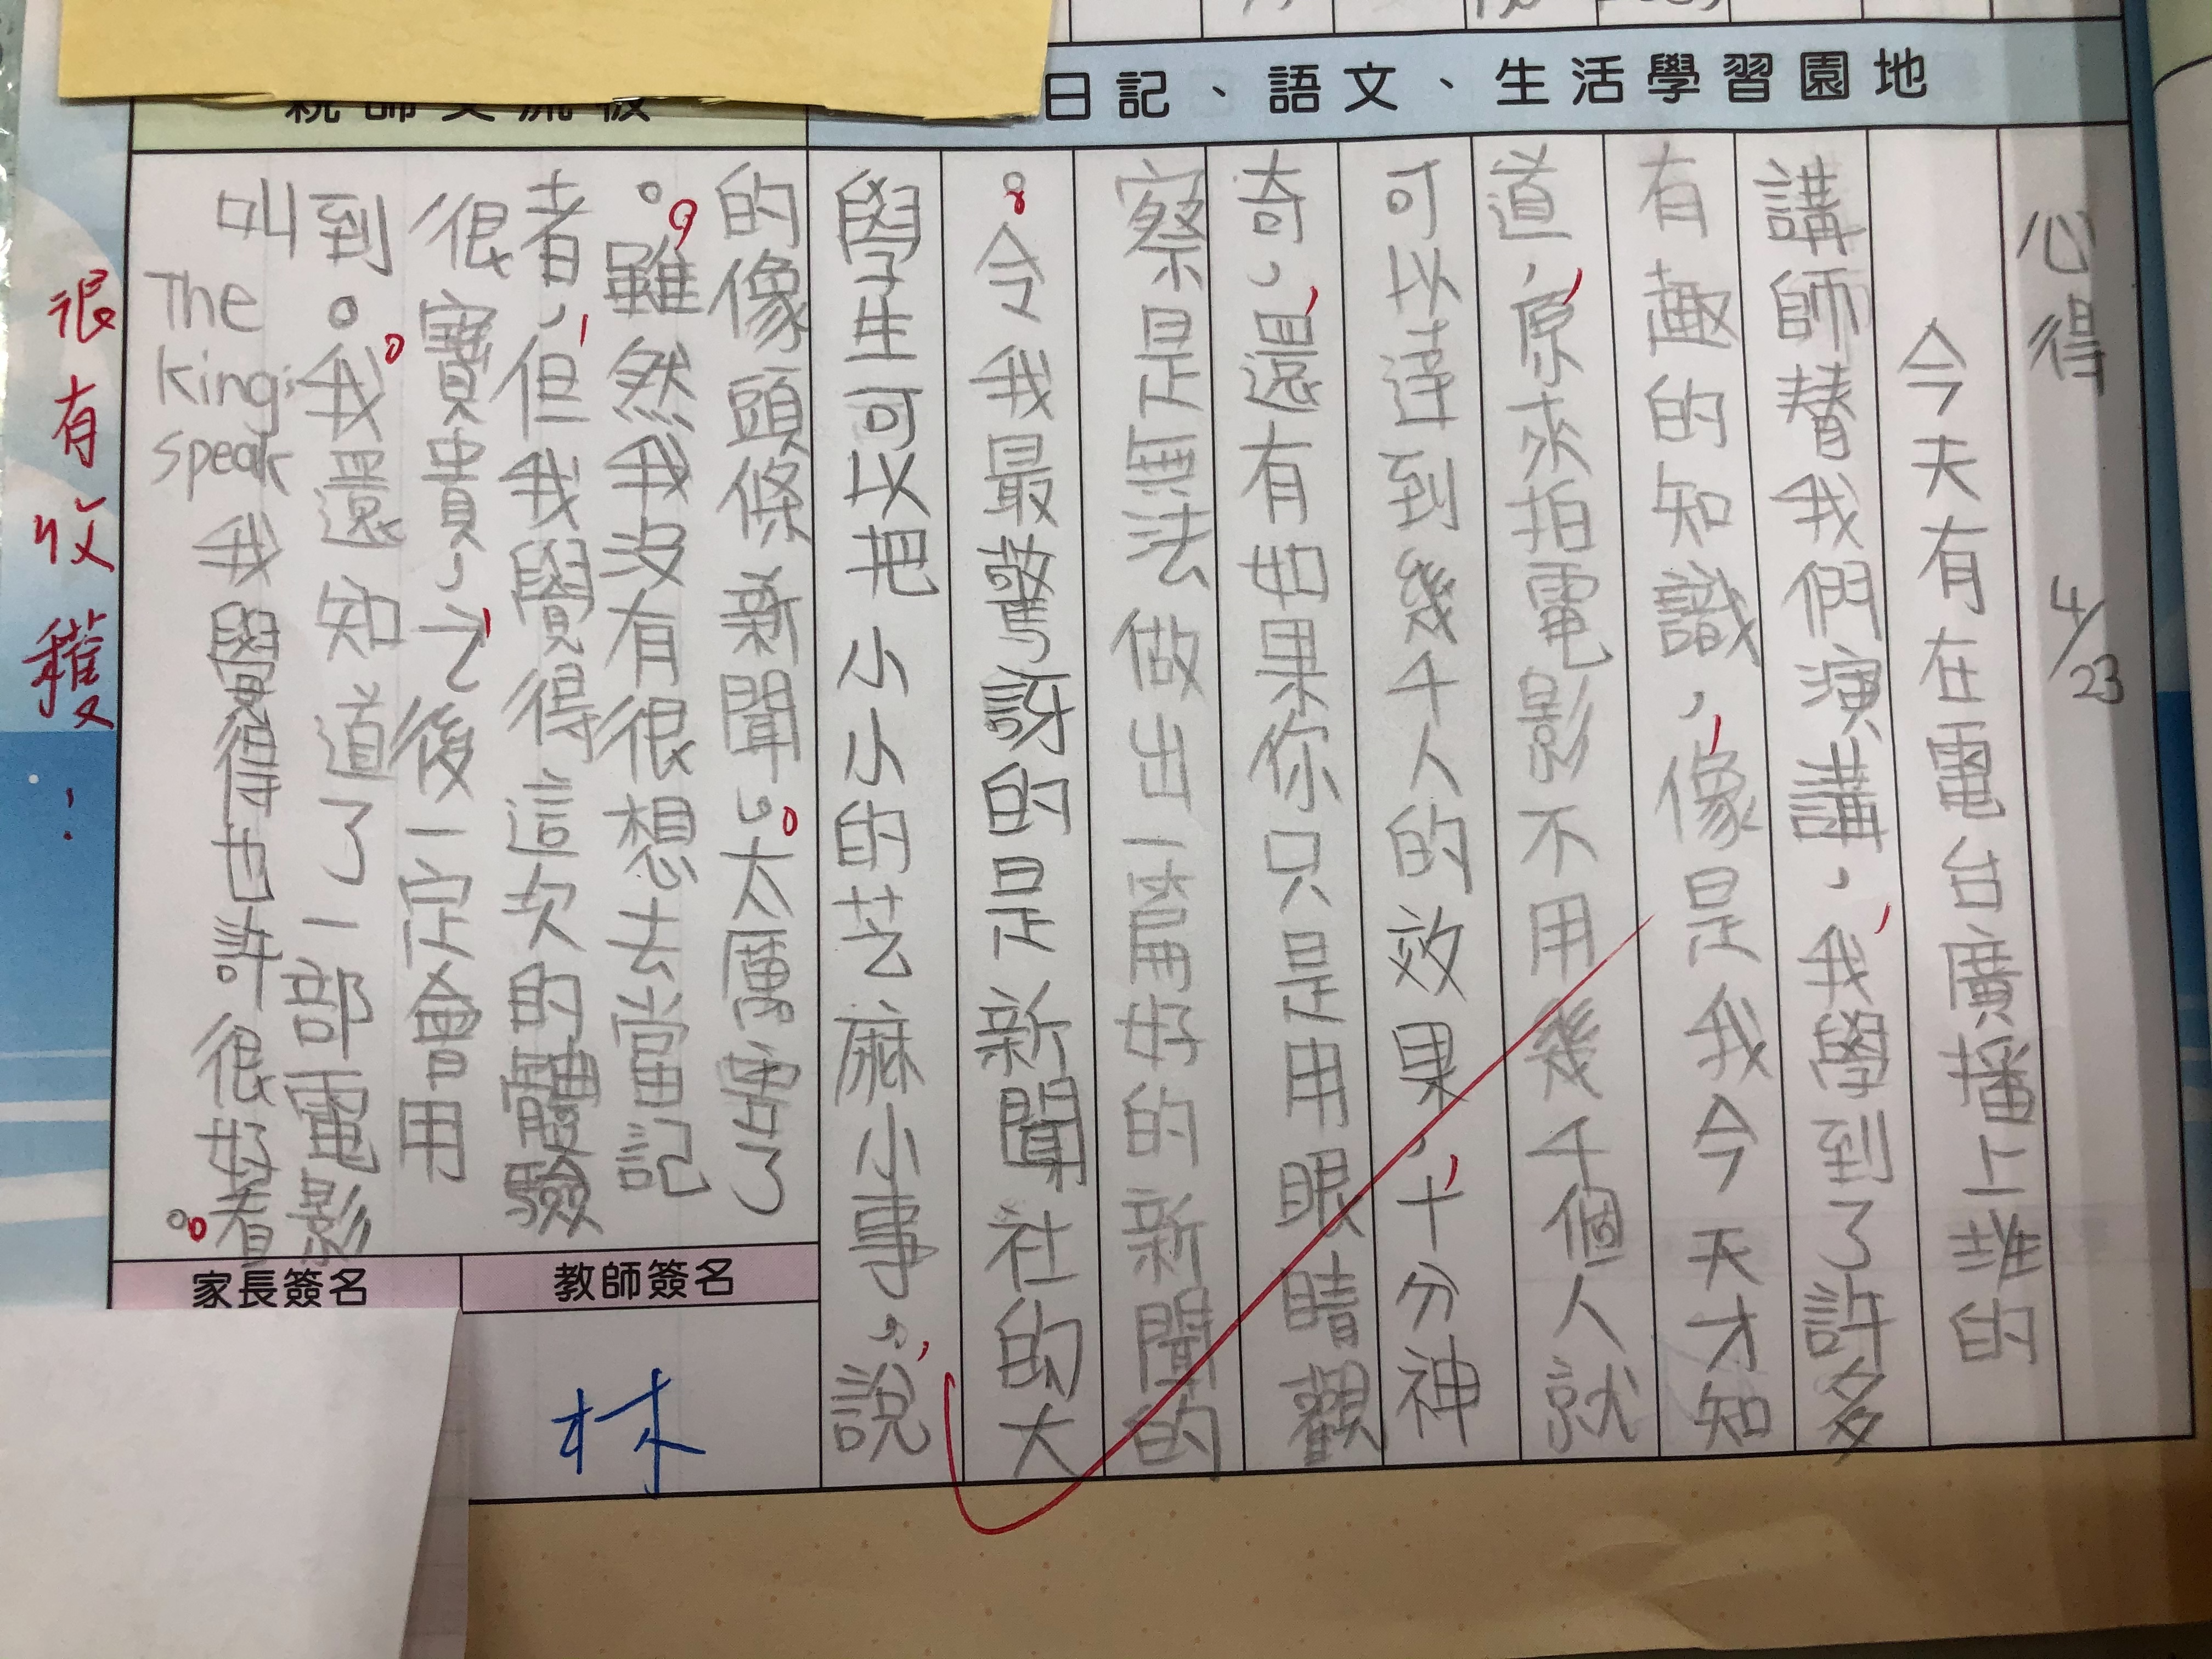 日記、語文、生活學習園地
心得 4/23
今天有在電台廣播上班的
講師替我們演講，我學到了許多
有趣的知識，像是我今天才知
道，原來拍電影不用幾千個人就
可以達到幾千人的效果，十分神
奇，還有如果你只是用眼睛觀
察是無法做出一篇好的新聞的
。令我最驚訝的是新聞社的大
學生可以把小小的芝麻小事，說
的像頭條新聞。太厲害了
。雖然我沒有很想去當記
者，但我覺得這次的體驗
很寶貴，之後一定會用
到。我還知道了一部電影
叫The king's speak我覺得也許很好看。
很有收穫！
教師簽名
家長簽名
林